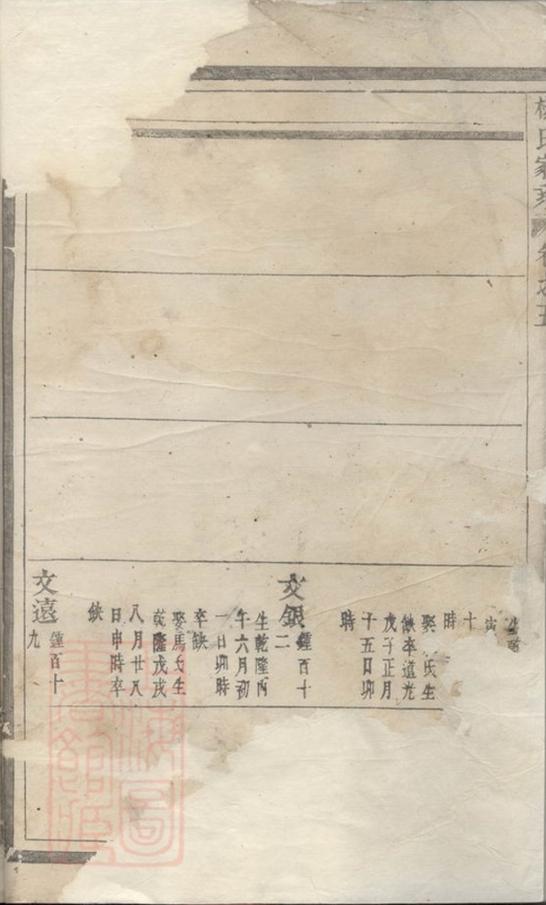 楊氏家乘 卷之五
寅
十
時
娶 氏生
缺卒道光
戊子正月
十五日卯
時
文銀 鍾百十二
生乾隆丙
午六月初
一日卯時
卒缺
娶馬氏生
乾隆戊戌
八月廿八
日申時卒
缺
文遠 鍾百十九
上海圖書館藏